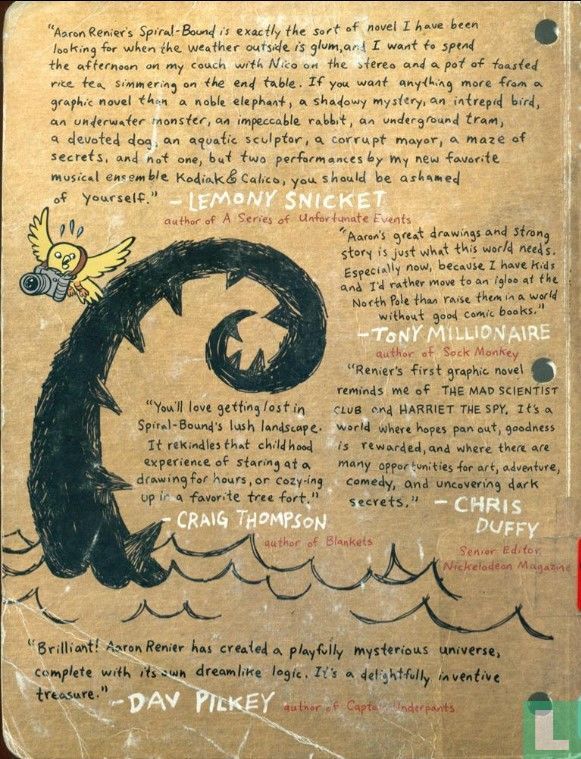 "Aaron Renier's Spiral-Bound is exactly the sort of novel I have been
looking for when the weather outside is glum, and I want to spend
the afternoon on my couch with Nico on the stereo and a pot of toasted
rice tea simmering on the end table. If you want anything more from a
graphic novel than a noble elephant, a shadowy mystery, an intrepid bird,
an underwater monster, an impeccable rabbit, an underground tram,
a devoted dog, an aquatic sculptor, a corrupt mayor, a maze of
secrets, and not one, but two performances by my new favorite
musical ensemble Kodiak & Calico, you should be ashamed
of yourself." – LEMONY SNICKET
author of A Series of Unfortunate Events
"Aaron's great drawings and strong
story is just what this world needs.
Especially now, because I have kids
and I'd rather move to an igloo at the
North Pole than raise them in a world
without good comic books."
– TONY MILLIONAIRE
author of Sock Monkey
"Renier's first graphic novel
reminds me of THE MAD SCIENTIST
CLUB and HARRIET THE SPY. It's a
world where hopes pan out, goodness
is rewarded, and where there are
many opportunities for art, adventure,
comedy, and uncovering dark
secrets." – CHRIS
DUFFY
Senior Editor,
Nickelodeon Magazine
"You'll love getting lost in
Spiral-Bound's lush landscape.
It rekindles that childhood
experience of staring at a
drawing for hours, or cozy-ing
up in a favorite tree fort."
– CRAIG THOMPSON
author of Blankets
"Brilliant! Aaron Renier has created a playfully mysterious universe,
complete with its own dreamlike logic. It's a delightfully inventive
treasure." – DAV PILKEY author of Captain Underpants
L